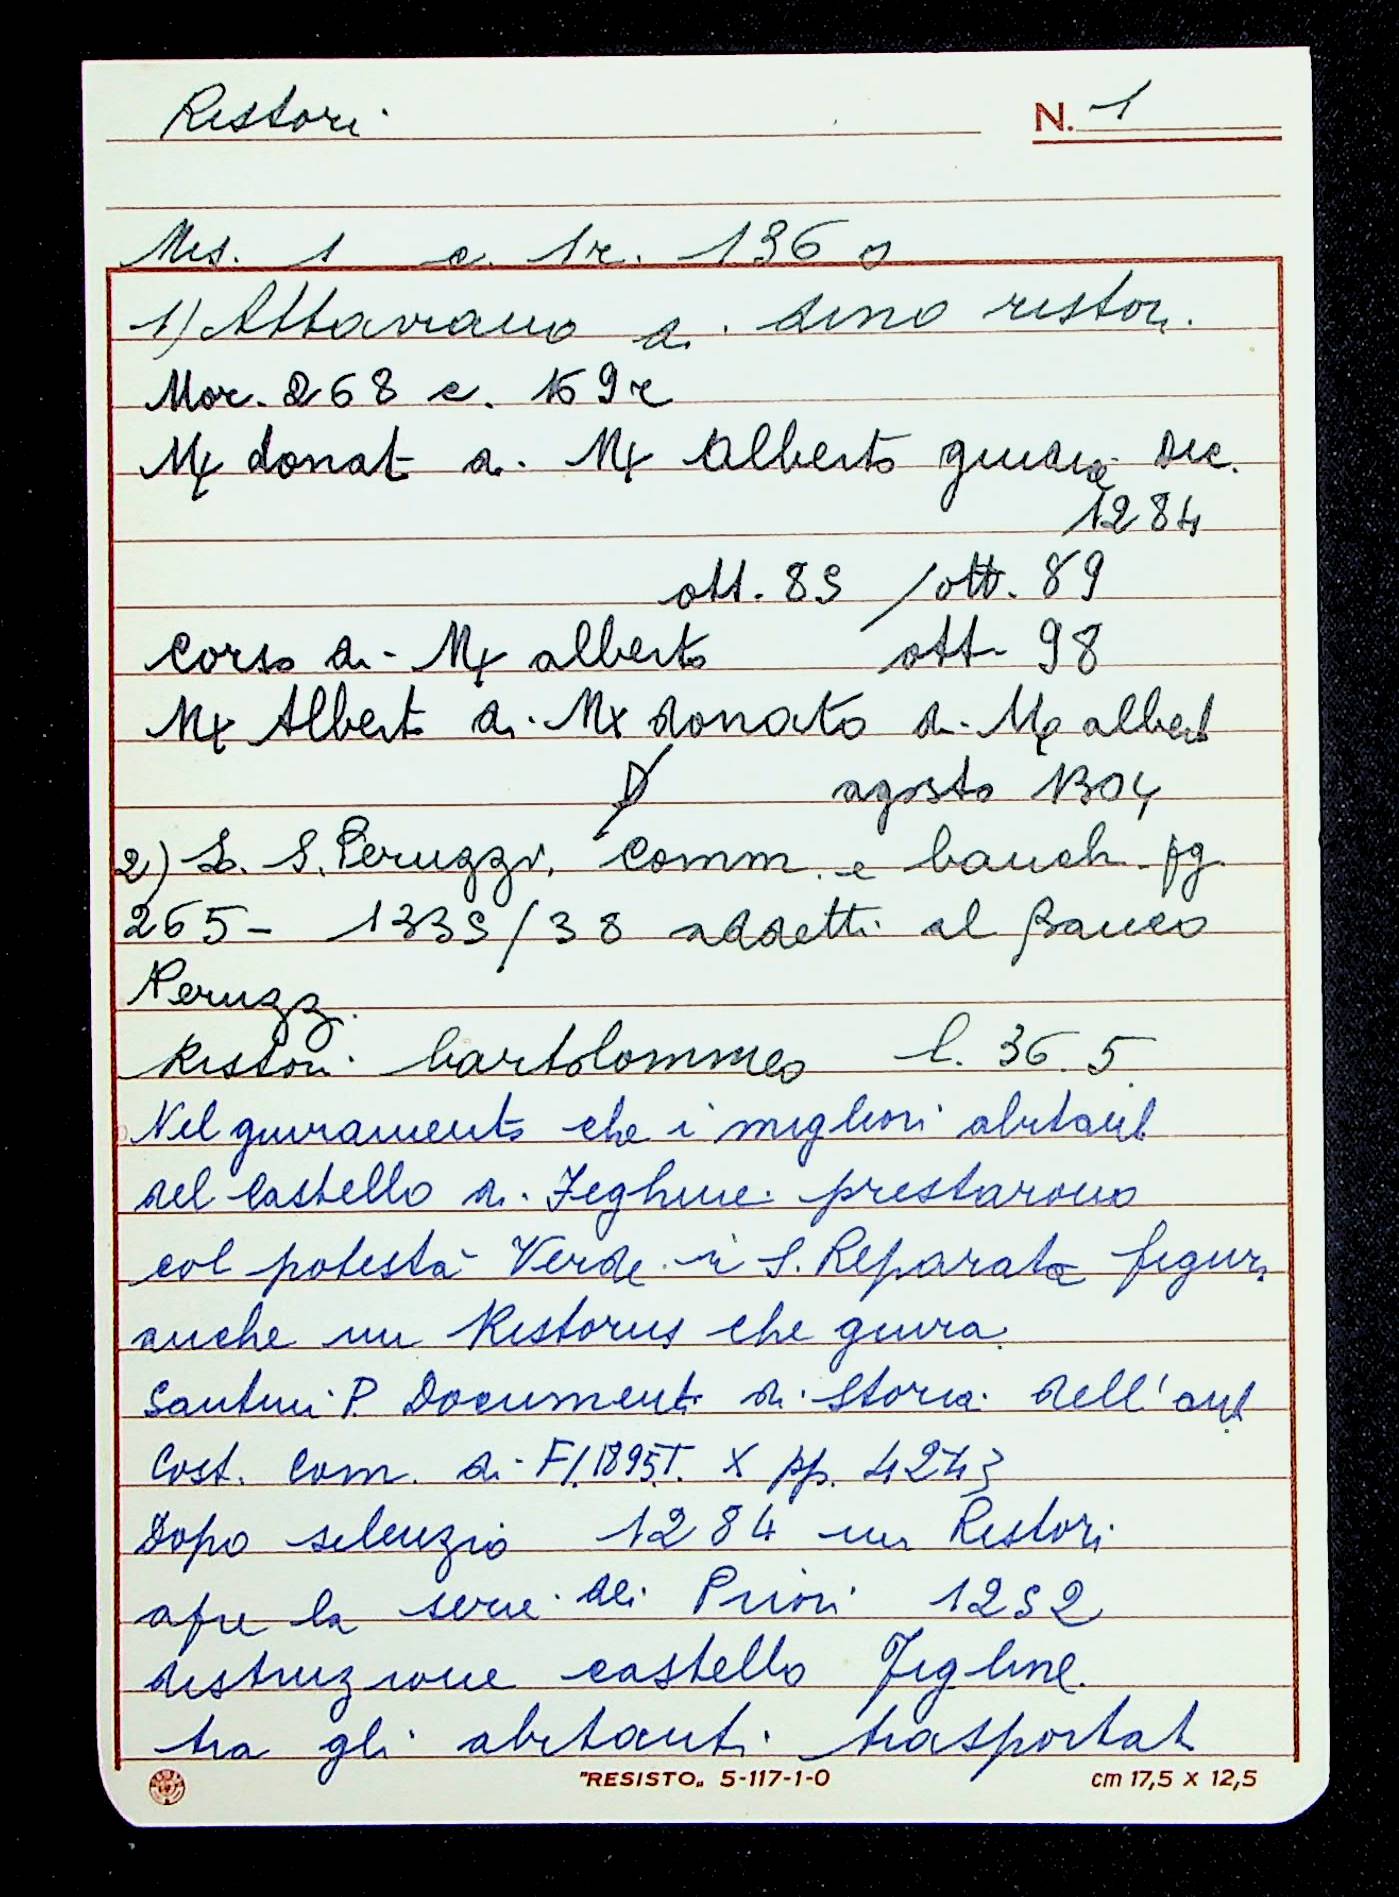 Ristori
N. 1
Ms. 1 c. 1r. 136
1) Attaviano di dino ristori
Mor. 268 c. 169r
Mx donat di Mx Alberto giudice Dic.
1284
ott. 89 / ott. 89
Corso di Mx alberto ott. 98
Mx Alberto di Mx donato di Mx albert
agosto 1304
2) S. Peruzzi, Comm. e banch. pg.
265 - 1335/38 addetti al Banco
Peruzzi
Ristori bartolommeo l. 36.5
Nel giuramento che i migliori abitanti
del Castello di Feghine prestarono
col potestà Verde in S. Reparata figura
anche un Ristorus che giura
Santini P. Documenti di Storia dell'ant
Cost. Com. di Fi. 1895 T. X pp. 42 43
Dopo silenzio 1284 un Ristori
apre la serie dei Priori 1252
distruzione castello Figline
tra gli abitanti trasportati
"RESISTO„ 5-117-1-0
cm 17,5 x 12,5